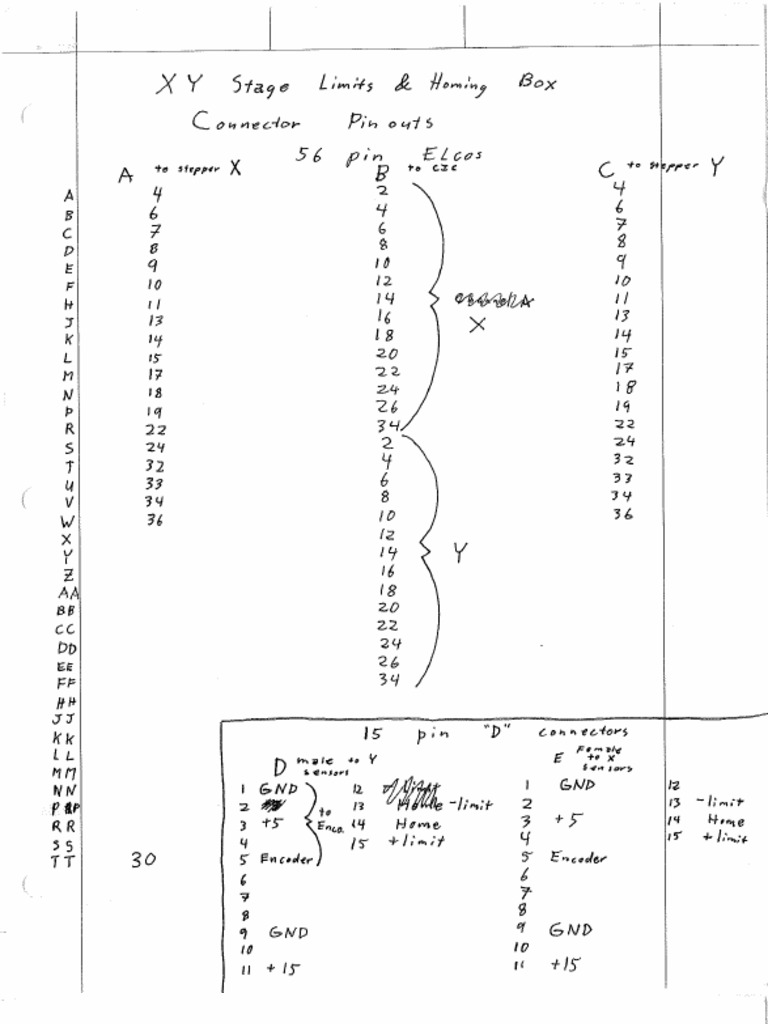 X Y Stage Limits & Homing Box
Connector Pin outs
56 pin ELcos
A to stepper X B to CIC C to stepper Y
A 4 2 4
B 6 4 6
C 7 6 7
D 8 8 8
E 9 10 9
F 10 12 10
H 11 14 11
J 13 16 X 13
K 14 18 14
L 15 20 15
M 17 22 17
N 18 24 18
P 19 26 19
R 22 34 22
S 24 2 24
T 32 4 32
U 33 6 33
V 34 8 34
W 36 10 36
X 12
Y 14 Y
Z 16
AA 18
BB 20
CC 22
DD 24
EE 26
FF 34
HH
JJ
KK
LL
MM
NN
PP
RR
SS
TT 30
15 pin "D" connectors
D male to Y sensors E Female to X sensors
1 GND 12 1 GND 12
2 13 Home -limit 2 13 -limit
3 +5 to Enco. 14 Home 3 +5 14 Home
4 15 +limit 4 15 +limit
5 Encoder 5 Encoder
6 6
7 7
8 8
9 GND 9 GND
10 10
11 +15 11 +15